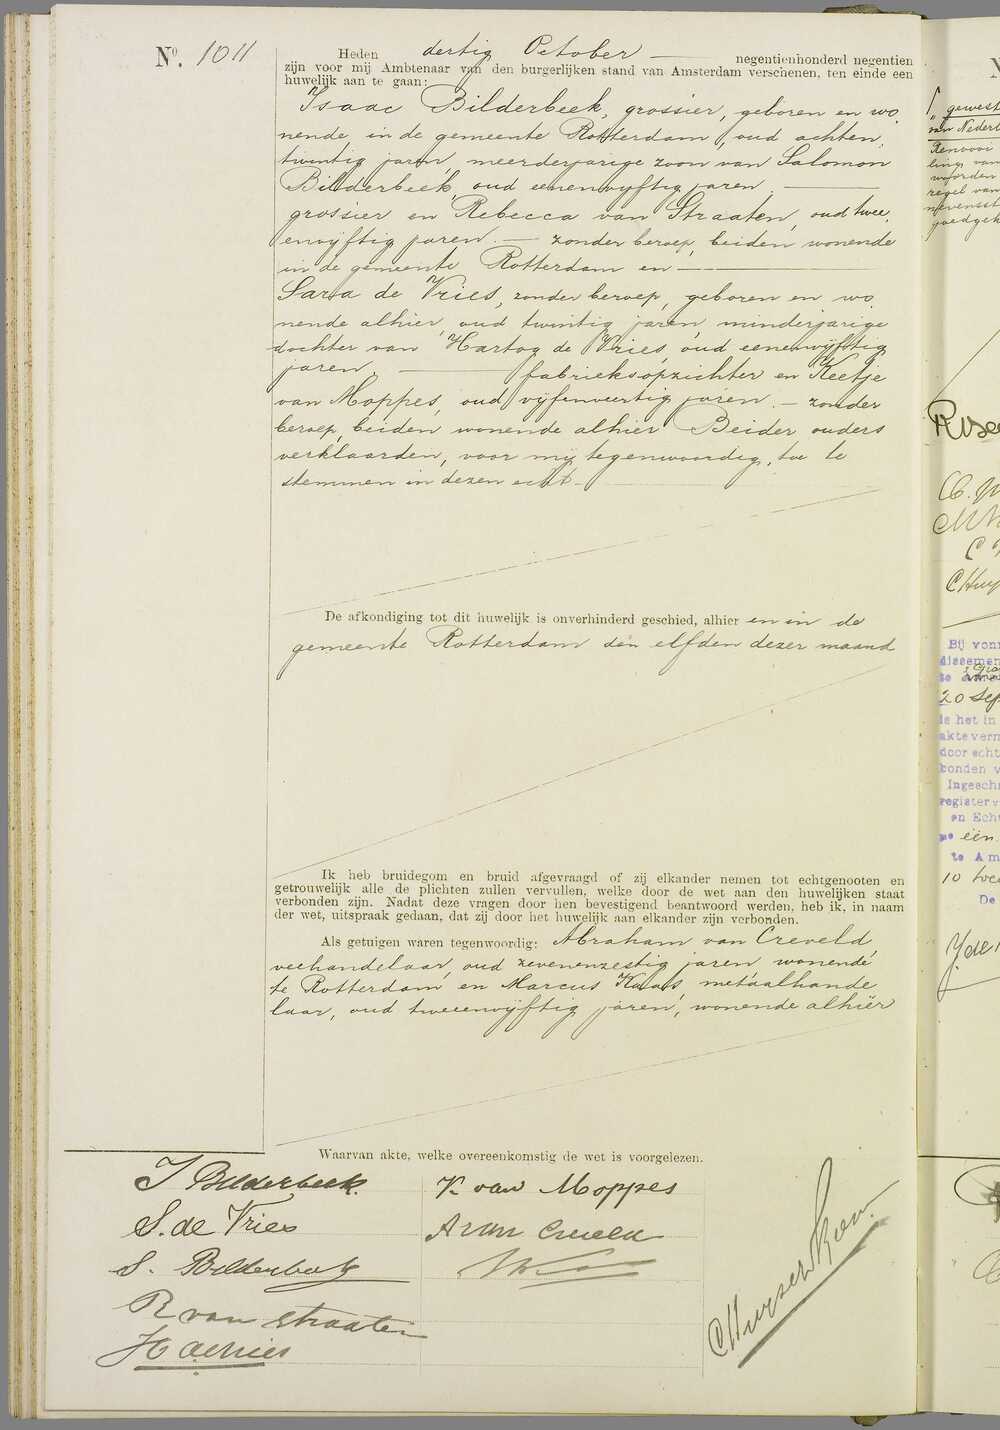 Nº. 1011
Heden dertig October negentienhonderd negentien
zijn voor mij Ambtenaar van den burgerlijken stand van Amsterdam verschenen, ten einde een
huwelijk aan te gaan:
Isaac Bilderbeek, grossier, geboren en wo-
nende in de gemeente Rotterdam, oud achten-
twintig jaren, meerderjarige zoon van Salomon
Bilderbeek, oud eenenvijftig jaren
grossier en Rebecca van Straaten, oud twee-
envijftig jaren. — zonder beroep, beiden wonende
in de gemeente Rotterdam en —
Sara de Vries, zonder beroep, geboren en wo-
nende alhier, oud twintig jaren, minderjarige
dochter van Hartog de Vries, oud eenenvijftig
jaren. — fabrieksopzichter en Keetje
van Moppes, oud vijfenveertig jaren. — zonder
beroep, beiden wonende alhier Beider ouders
verklaarden, voor mij tegenwoordig, toe te
stemmen in dezen echt —
De afkondiging tot dit huwelijk is onverhinderd geschied, alhier en in de
gemeente Rotterdam den elfden dezer maand
Ik heb bruidegom en bruid afgevraagd of zij elkander nemen tot echtgenooten en
getrouwelijk alle de plichten zullen vervullen, welke door de wet aan den huwelijken staat
verbonden zijn. Nadat deze vragen door hen bevestigend beantwoord werden, heb ik, in naam
der wet, uitspraak gedaan, dat zij door het huwelijk aan elkander zijn verbonden.
Als getuigen waren tegenwoordig: Abraham van Creveld,
veehandelaar, oud zevenenzestig jaren, wonende
te Rotterdam en Marcus Kaas, metaalhande
laar, oud tweeenvijftig jaren, wonende alhier
Waarvan akte, welke overeenkomstig de wet is voorgelezen.
I Bilderbeek.
K. van Moppes
S. de Vries
A van Creveld
S. Bilderbeek
R van Straaten
H de Vries
gewest
van Nederl
ling van
worden
regel van
nevenst
goedgek
Bij vonn
dissemen
te
20 Sep
is het in
akte verm
door echt
bonden v
Ingeschr
register v
en Echt
één
te Am
10 twee
De